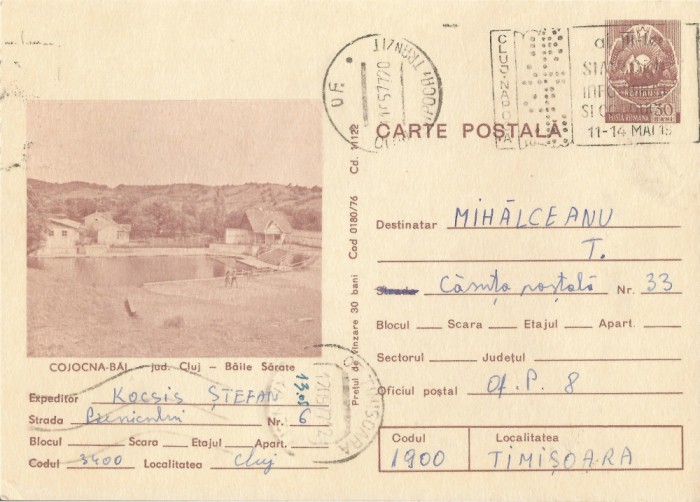 CLUJ-NAPOCA
STATISTICĂ
INFORMATICĂ
11-14 MAI 19
POSTA ROMANA 30 BANI
TRANZIT
CARTE POSTALĂ
Cd. 11122
Cod 0180/76
Prețul de vînzare 30 bani
Destinatar MIHĂLCEANU
T.
Strada Căsuța poștală Nr. 33
Blocul Scara Etajul Apart.
Sectorul Județul
Oficiul poștal Of. P. 8
Codul Localitatea
1900 TIMIȘOARA
COJOCNA-BĂI — jud. Cluj — Băile Sărate
TIMIȘOARA
13.05
Expeditor KOCSIS ȘTEFAN
Strada Nr. 6
Blocul Scara Etajul Apart.
Codul 3400 Localitatea Cluj